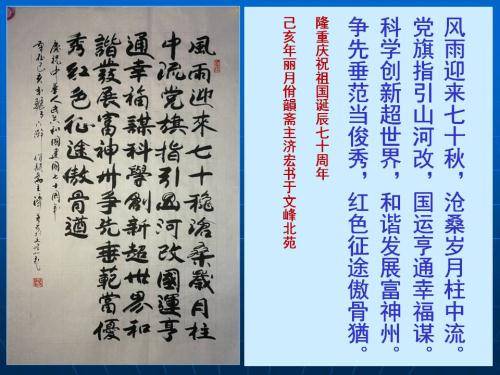 風雨迎來七十穐滄桑歲月柱
中流党旗指引山河改國運亨
通幸福謀科學創新超世界和
諧發展富神州爭先垂範當優
秀紅色征途傲骨遒
慶祝中華人民共和國建國七十周年
风雨迎来七十秋，沧桑岁月柱中流。
党旗指引山河改，国运亨通幸福谋。
科学创新超世界，和谐发展富神州。
争先垂范当俊秀，红色征途傲骨猶。
隆重庆祝祖国诞辰七十周年
己亥年丽月佾韻斋主济宏书于文峰北苑